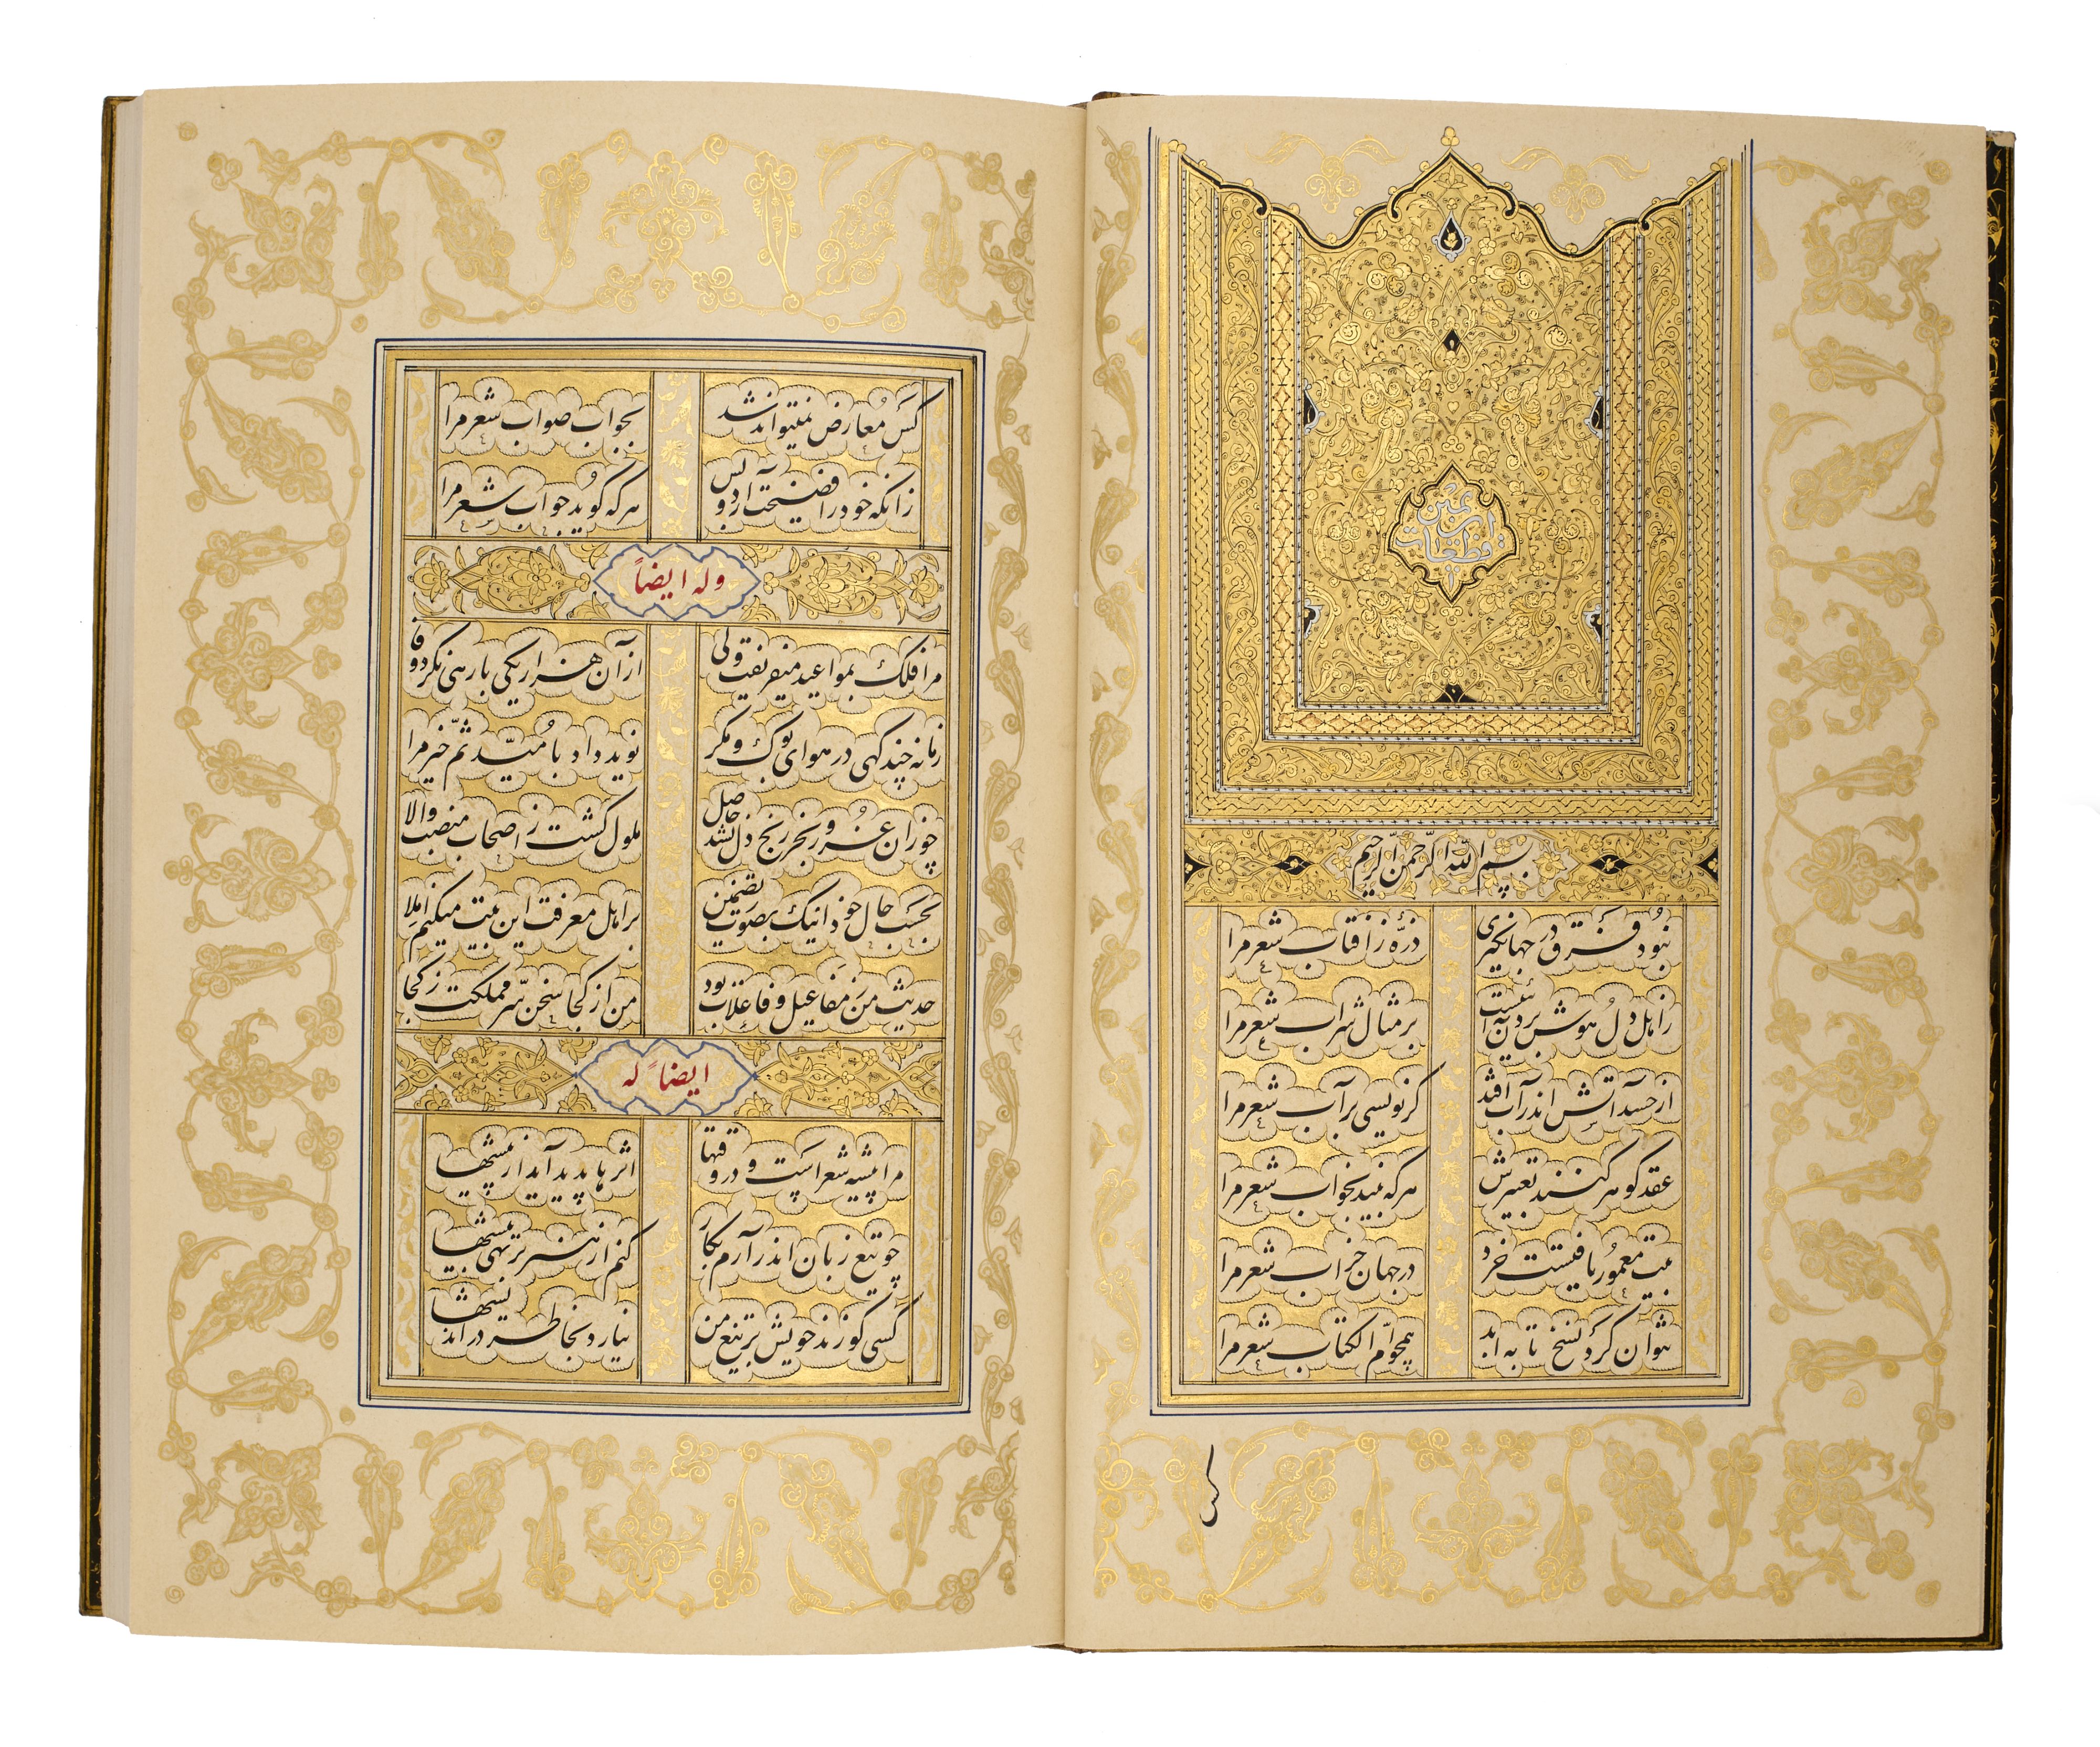 قطعات ابن یمین
بسم الله الرحمن الرحیم
نبود فرق در جهانگیری ذرّه ز آفتاب شعر مرا
ز اهل دل هوش برد نیست بر مثال شراب شعر مرا
از حسد آتش اندر آب افتد گر نویسی بر آب شعر مرا
عقد گوهر کنند تعبیرش هرکه بیند بخواب شعر مرا
بیت معمور یافتست خرد در جهان خراب شعر مرا
نتوان کرد نسخ تا به ابد همچو امّ الکتاب شعر مرا
کس
کس مُعارض نمیتواند شد بجواب صواب شعر مرا
زانکه خود را فضیحت آرد و بس هرکه گوید جواب شعر مرا
وله ایضاً
مرا فلک بمواعید میفریفت ولی از آن هزار یکی بار هی نکرد وفا
زمانه چند گهی در هوای بوک و مگر نوید داد باُمیّد ثمّ خیر مرا
چو زان غرور بجز رنج دل نشد حاصل ملول گشت ز اصحاب منصب والا
بحسب حال خود اینک بصوت تضمین بر اهل معرفت این بیت میکنم املا
حدیث من ز مَفاعیل و فاعِلات بود من از کجا سخن سّر مملکت ز کجا
ایضاً له
مرا پیشه شعر است و در وقتها اثرها پدید آید از پیشها
چو تیغ زبان اندر آرم بکار کنم از هنر بر تهی بیشها
کسی کو زند خویش بر تیغ من نیارد بخاطر در اندیشها